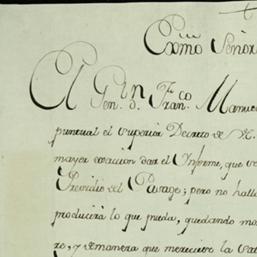 Exmo Señor
El Gen. d. Fran.co Manue
puntual el Superior Decreto de V.
mayor estacion dar el Informe, que se
Presidio del Pasage; pero no halla
producirá lo que pueda, quedando mo
re, y demanera que merecive la sat